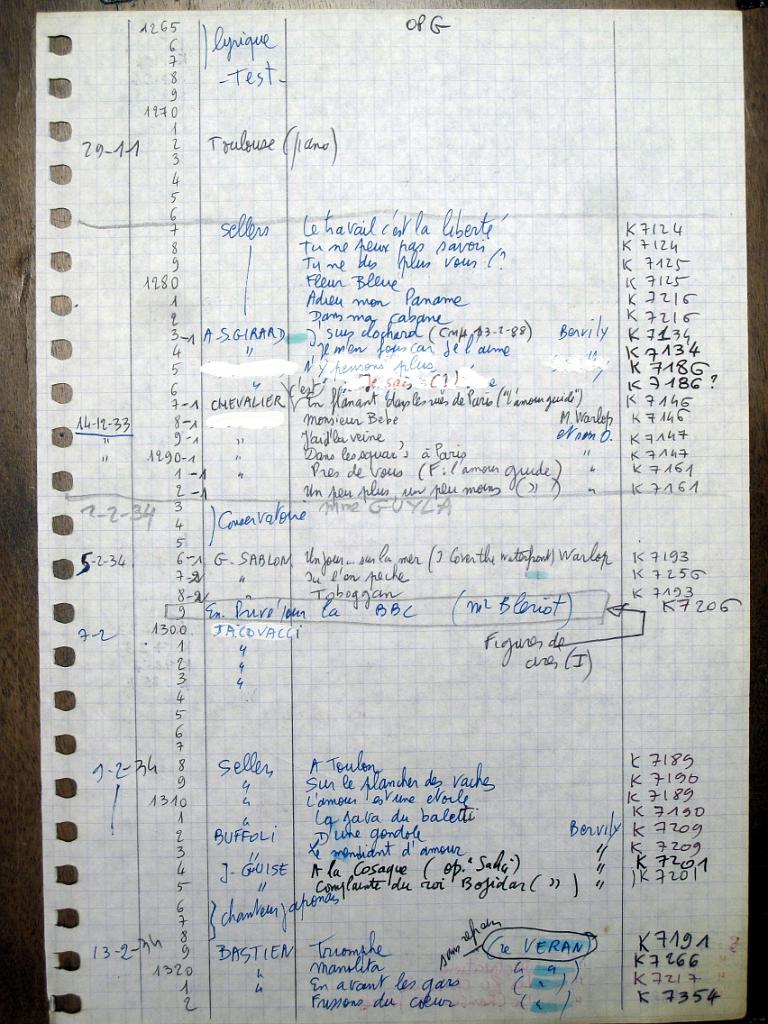 OPG
1265
6 ) lyrique
7
8 - Test -
9
1270
1
29-11 2 Toulouse (piano)
3
4
5
6
7 Sellers Le travail c'est la liberté K 7124
8 Tu ne peux pas savoir K 7124
9 Tu ne dis plus vous (? K 7125
1280 Fleur Bleue K 7125
1 Adieu mon Paname K 7216
2 Dans ma cabane K 7216
3-1 A.S. GIRARD J'suis clochard ( 13-2-88) Bervily K 7134
4 " Je m'en fous car je l'aime " K 7134
5 N'y pensons plus K 7186
6 " Je sais (!) K 7186?
7-1 CHEVALIER (c'est) En flanant dans les rues de Paris ("l'amour guide") K 7146
14-12-33 8-1 Monsieur Bébé M. Warlop K 7146
" 9-1 " J'ai d'la veine et non O. K 7147
" 1290-1 " Dans les squar's à Paris K 7147
1-1 " Près de vous (F: l'amour guide) " K 7161
2-1 Un peu plus, un peu moins ( " ) " K 7161
2-2-34 3 ) Conservatoire mme GUYLA
4
5
5-2-34 6-1 G. SABLON Un jour... sur la mer (I cover the waterfront) Warlop K 7193
7-2 " Ici l'on pêche K 7256
8-2 " Toboggan K 7193
9 En Privé pour la BBC (mr Bleriot) K 7206
7-2 1300 JACOVACCI Figures de cires (I)
1 "
2 "
3 "
4
5
6
7
9-2-34 8 Sellers A Toulon K 7189
9 " Sur le plancher des vaches K 7190
1310 " L'amour est une etoile K 7189
1 " La java du baletti K 7190
2 BUFFOLI D'une gondole Bervily K 7209
3 " Le mendiant d'amour " K 7209
4 J. GUISE A la Cosaque (op. ) " K 7201
5 " Complainte du roi Bojidar ( " ) " ) K 7201
6 } chanteur japonais
7
8
13-2-34 9 BASTIEN Triomphe (re VERAN) K 7191
1320 " Manolita ( " ) K 7266
1 " En avant les gars ( " ) K 7217
2 Frissons du coeur ( " ) K 7354